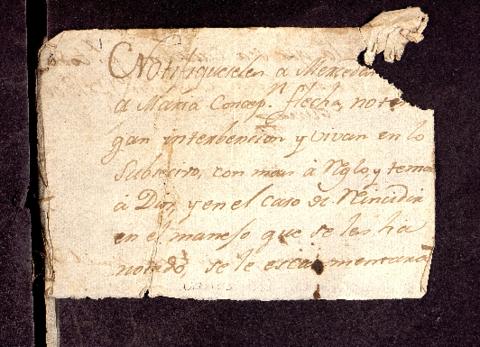 Notifiquesele a Mercedes
a Maria Concepn. flecha, note
gan interbencion y vivan en lo
Subsecivo, con mas à Rglo y temor
à Dios, y en el caso de Rincidir
en el manejo que se les ha
notado, se le escarmentara